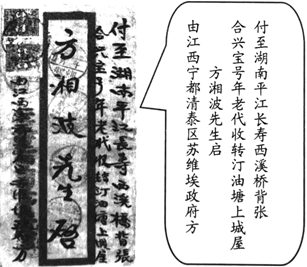 付至湖南平江长寿西溪桥背张
合兴宝号年老代收转汀油塘上城屋
方湘波先生启
付至湖南平江长寿西溪桥背张
合兴宝号年老代收转汀油塘上城屋
方湘波先生启
由江西宁都清泰区苏维埃政府方